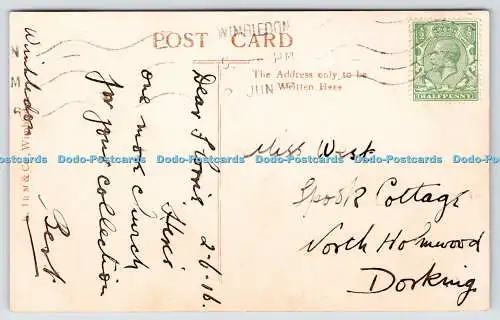 POST CARD
The Address only to be
Written Here
WIMBLEDON
PM
JUN
HALFPENNY
Wimbledon
2-6-16.
Dear
Here's
one more church
for your collection
Bert
Miss West
Cottage
North Holmwood
Dorking
Dodo-Postcards Dodo-Postcards Dodo-Postcards Dodo-Postcards Dodo-Postcards Dodo-Postcards